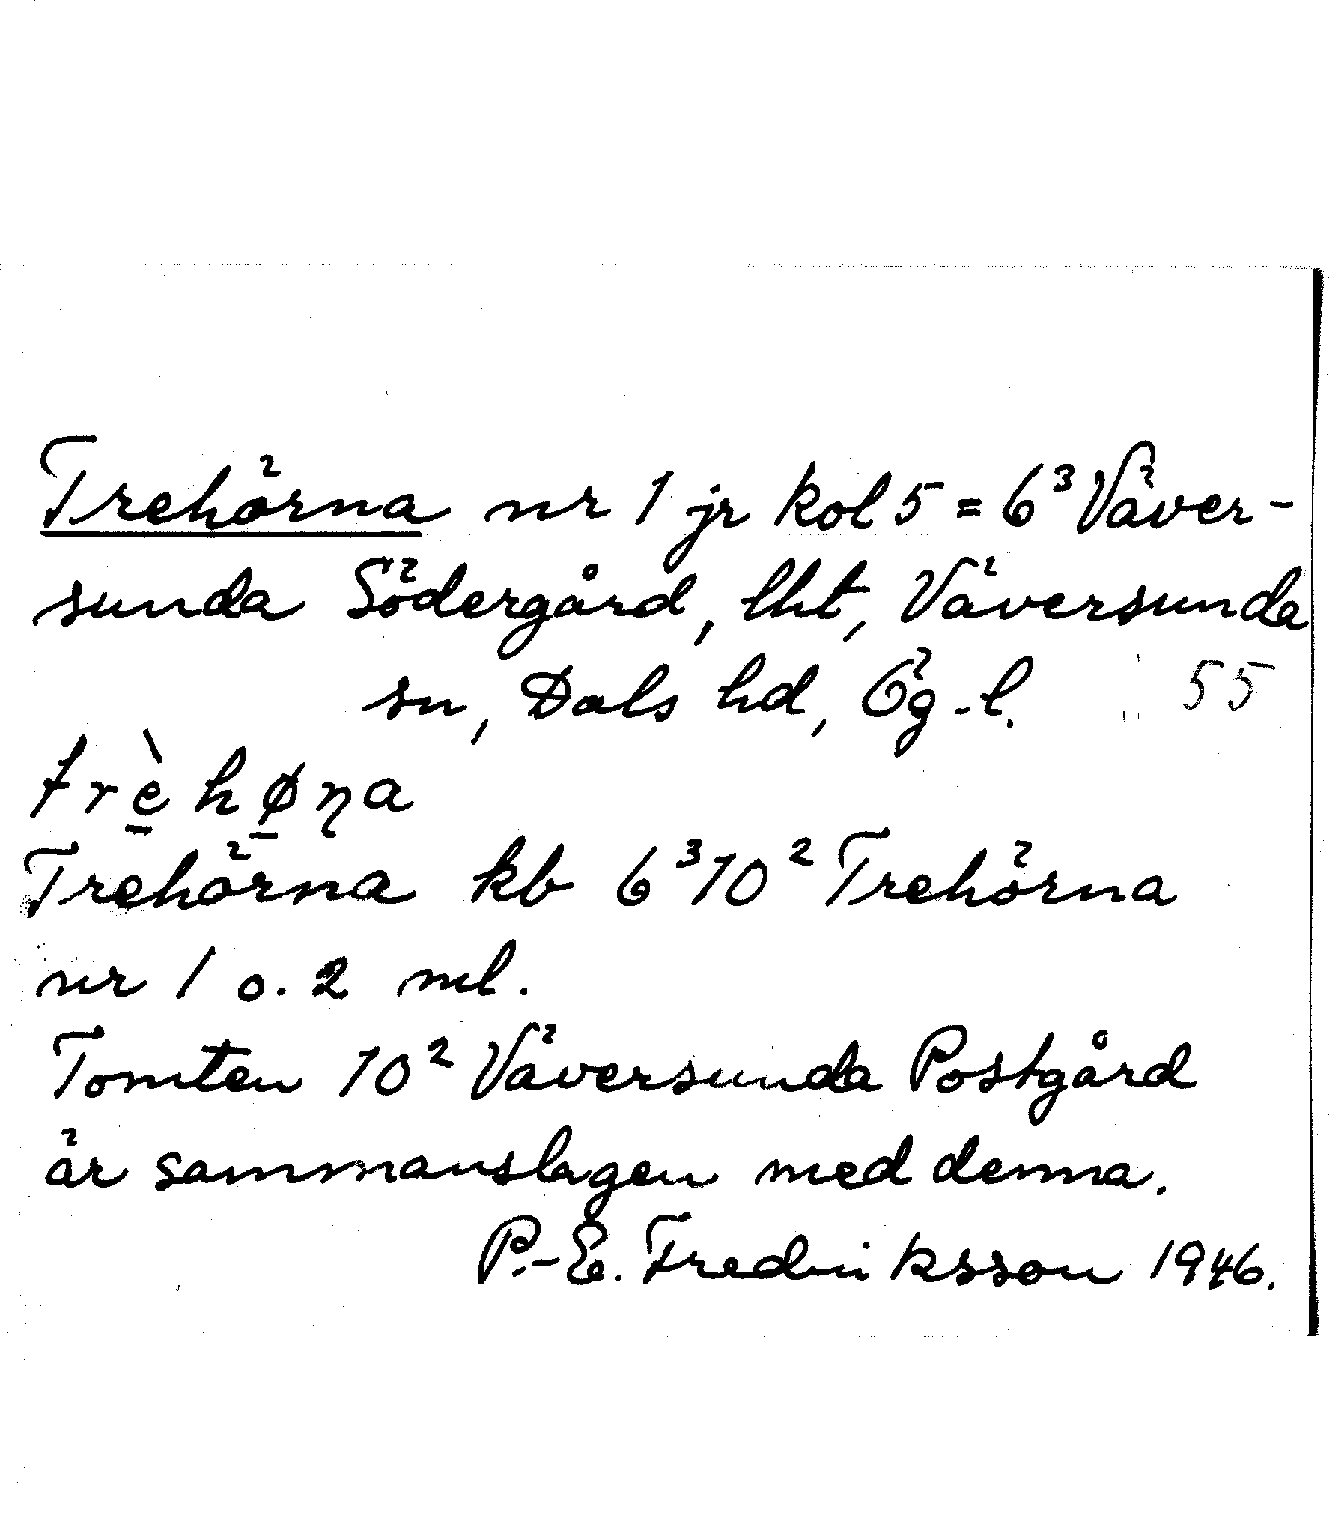 Trehörna nr 1 jr kol 5 = 6³ Väver-
sunda Södergård, lht, Väversunda
sn, Dals hd, Ög.l. 55
trè̠hø̠ɳa
Trehörna kb 6³10² Trehörna
nr 1 o. 2 ml.
Tomten 10² Väversunda Postgård
är sammanslagen med denna.
P.-E. Fredriksson 1946.